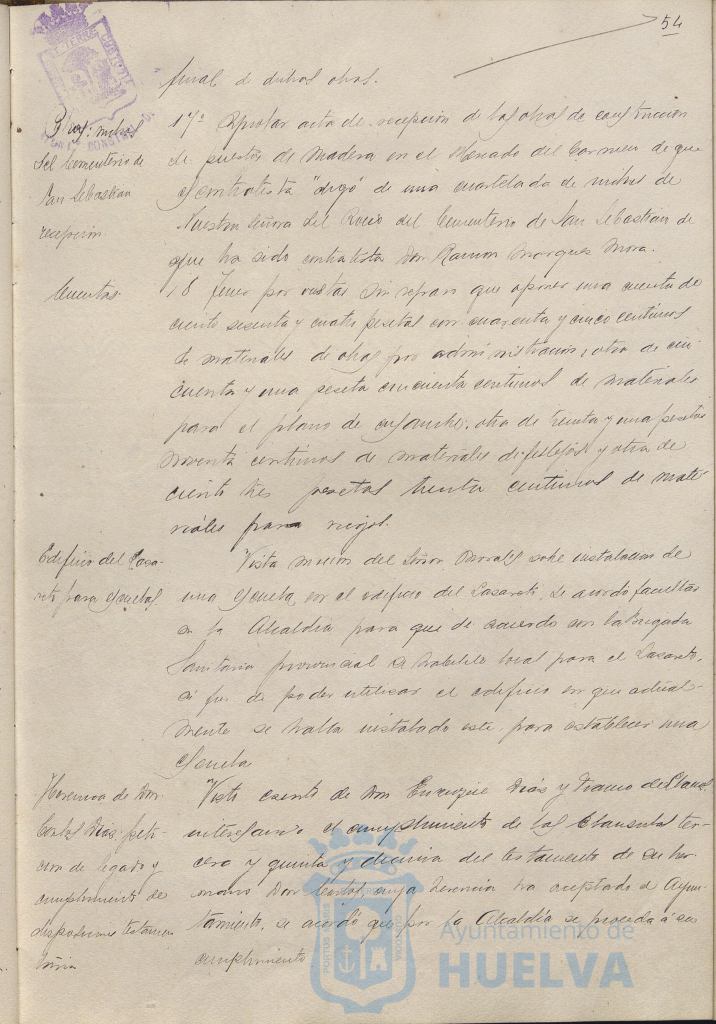 54
final de dichas obras.
Proy: nichos
del Cementerio de
San Sebastian
recepción.
17º Aprobar acta de recepción de las obras de construcción
de puestos de madera en el Mercado del Carmen de que
contratista "digo" de una cuartelada de nichos de
Nuestra Señora del Rocio del Cementerio de San Sebastian de
que ha sido contratista Don Ramon Marquez Mora.
Cuentas.
18 Tener por vistas sin reparo que oponer una cuenta de
ciento sesenta y cuatro pesetas con cuarenta y cinco centimos
de materiales de obras por administración, otra de cin
cuenta y una peseta cincuenta centimos de materiales
para el plano de ensanche, otra de treinta y una pesetas
noventa centimos de materiales de festejos y otra de
ciento tres pesetas treinta centimos de mate-
riales para riegos.
Edificio del Laza-
reto para Escuelas.
Vista mocion del Señor Borrallo sobre instalacion de
una Escuela en el edificio del Lazareto, se acordo facultar
a la Alcaldía para que de acuerdo con la Brigada
Sanitaria provincial se habilite local para el Lazareto,
a fin de poder utilizar el edificio en que actual-
mente se halla instalado este, para establecer una
Escuela
Herencia de Don
Carlos Diaz peti-
cion de legado y
cumplimiento de
disposiciones testamen
taria
Visto escrito de Don Enrique Diaz y Franco de Llanos
interesando el cumplimiento de las clausulas ter-
cera y quinta y decima del testamento de su her-
mano Don Carlos, cuya herencia ha aceptado el Ayun-
tamiento, se acordó que por la Alcaldía se proceda á su
cumplimiento.
Ayuntamiento de
HUELVA